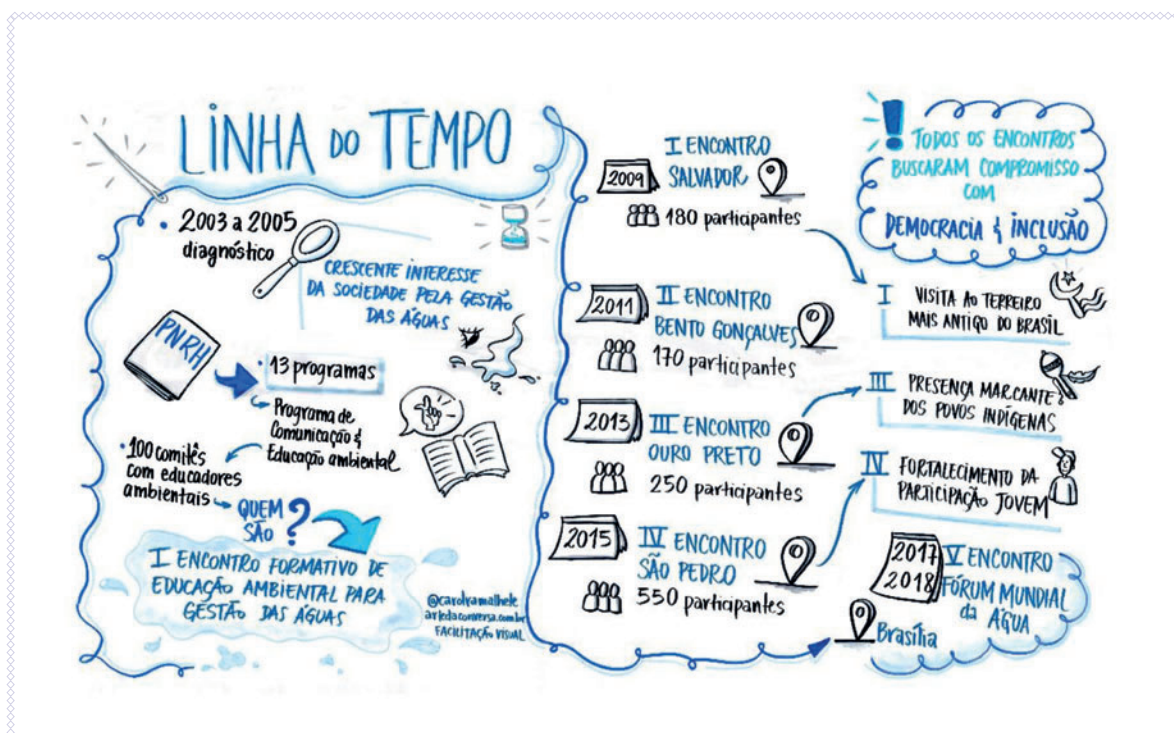 LINHA DO TEMPO
• 2003 a 2005
diagnóstico
CRESCENTE INTERESSE
DA SOCIEDADE PELA GESTÃO
DAS ÁGUAS
PNRH
• 13 programas
Programa de
Comunicação &
Educação ambiental
• 100 comitês
com educadores
ambientais
QUEM
SÃO ?
I ENCONTRO FORMATIVO DE
EDUCAÇÃO AMBIENTAL PARA
GESTÃO DAS ÁGUAS
@carolramalhete
artedaconversa.com.br
FACILITAÇÃO VISUAL
2009
I ENCONTRO
SALVADOR
180 participantes
2011
II ENCONTRO
BENTO GONÇALVES
170 participantes
2013
III ENCONTRO
OURO PRETO
250 participantes
2015
IV ENCONTRO
SÃO PEDRO
550 participantes
! TODOS OS ENCONTROS
BUSCARAM COMPROMISSO
COM
DEMOCRACIA & INCLUSÃO
I VISITA AO TERREIRO
MAIS ANTIGO DO BRASIL
III PRESENÇA MARCANTE
DOS POVOS INDÍGENAS
IV FORTALECIMENTO DA
PARTICIPAÇÃO JOVEM
2017
2018
V ENCONTRO
FÓRUM MUNDIAL
da ÁGUA
Brasília